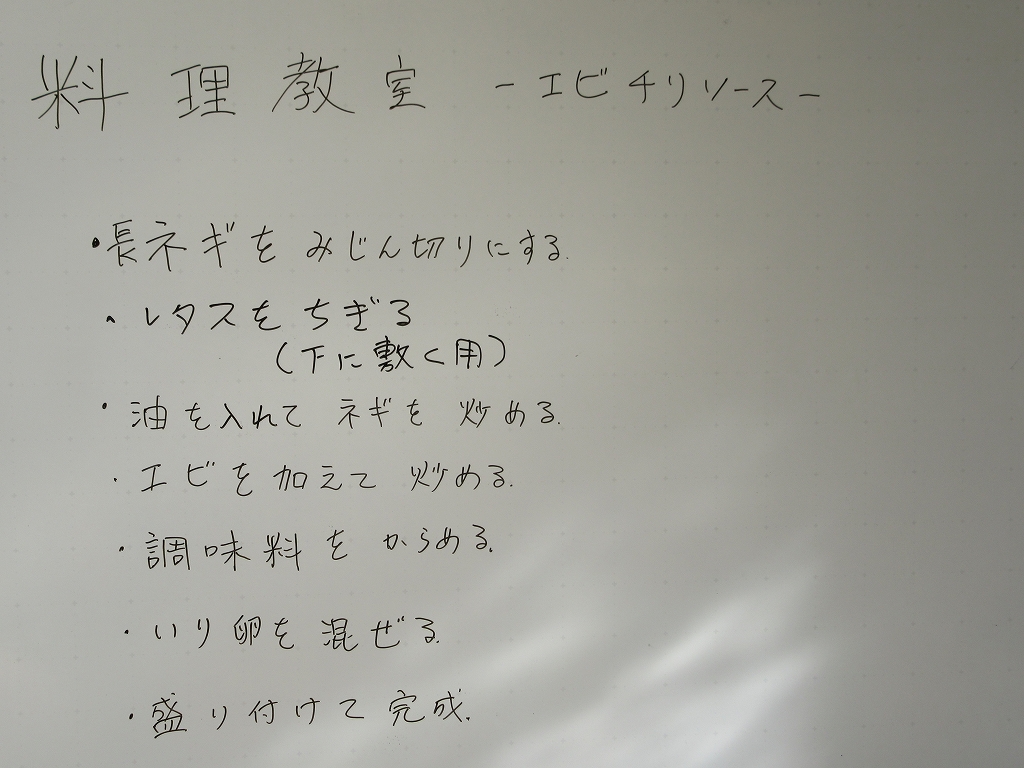 料理教室 -エビチリソース-
・長ネギをみじん切りにする.
・レタスをちぎる
(下に敷く用)
・油を入れてネギを炒める.
・エビを加えて炒める.
・調味料をからめる.
・いり卵を混ぜる.
・盛り付けて完成.